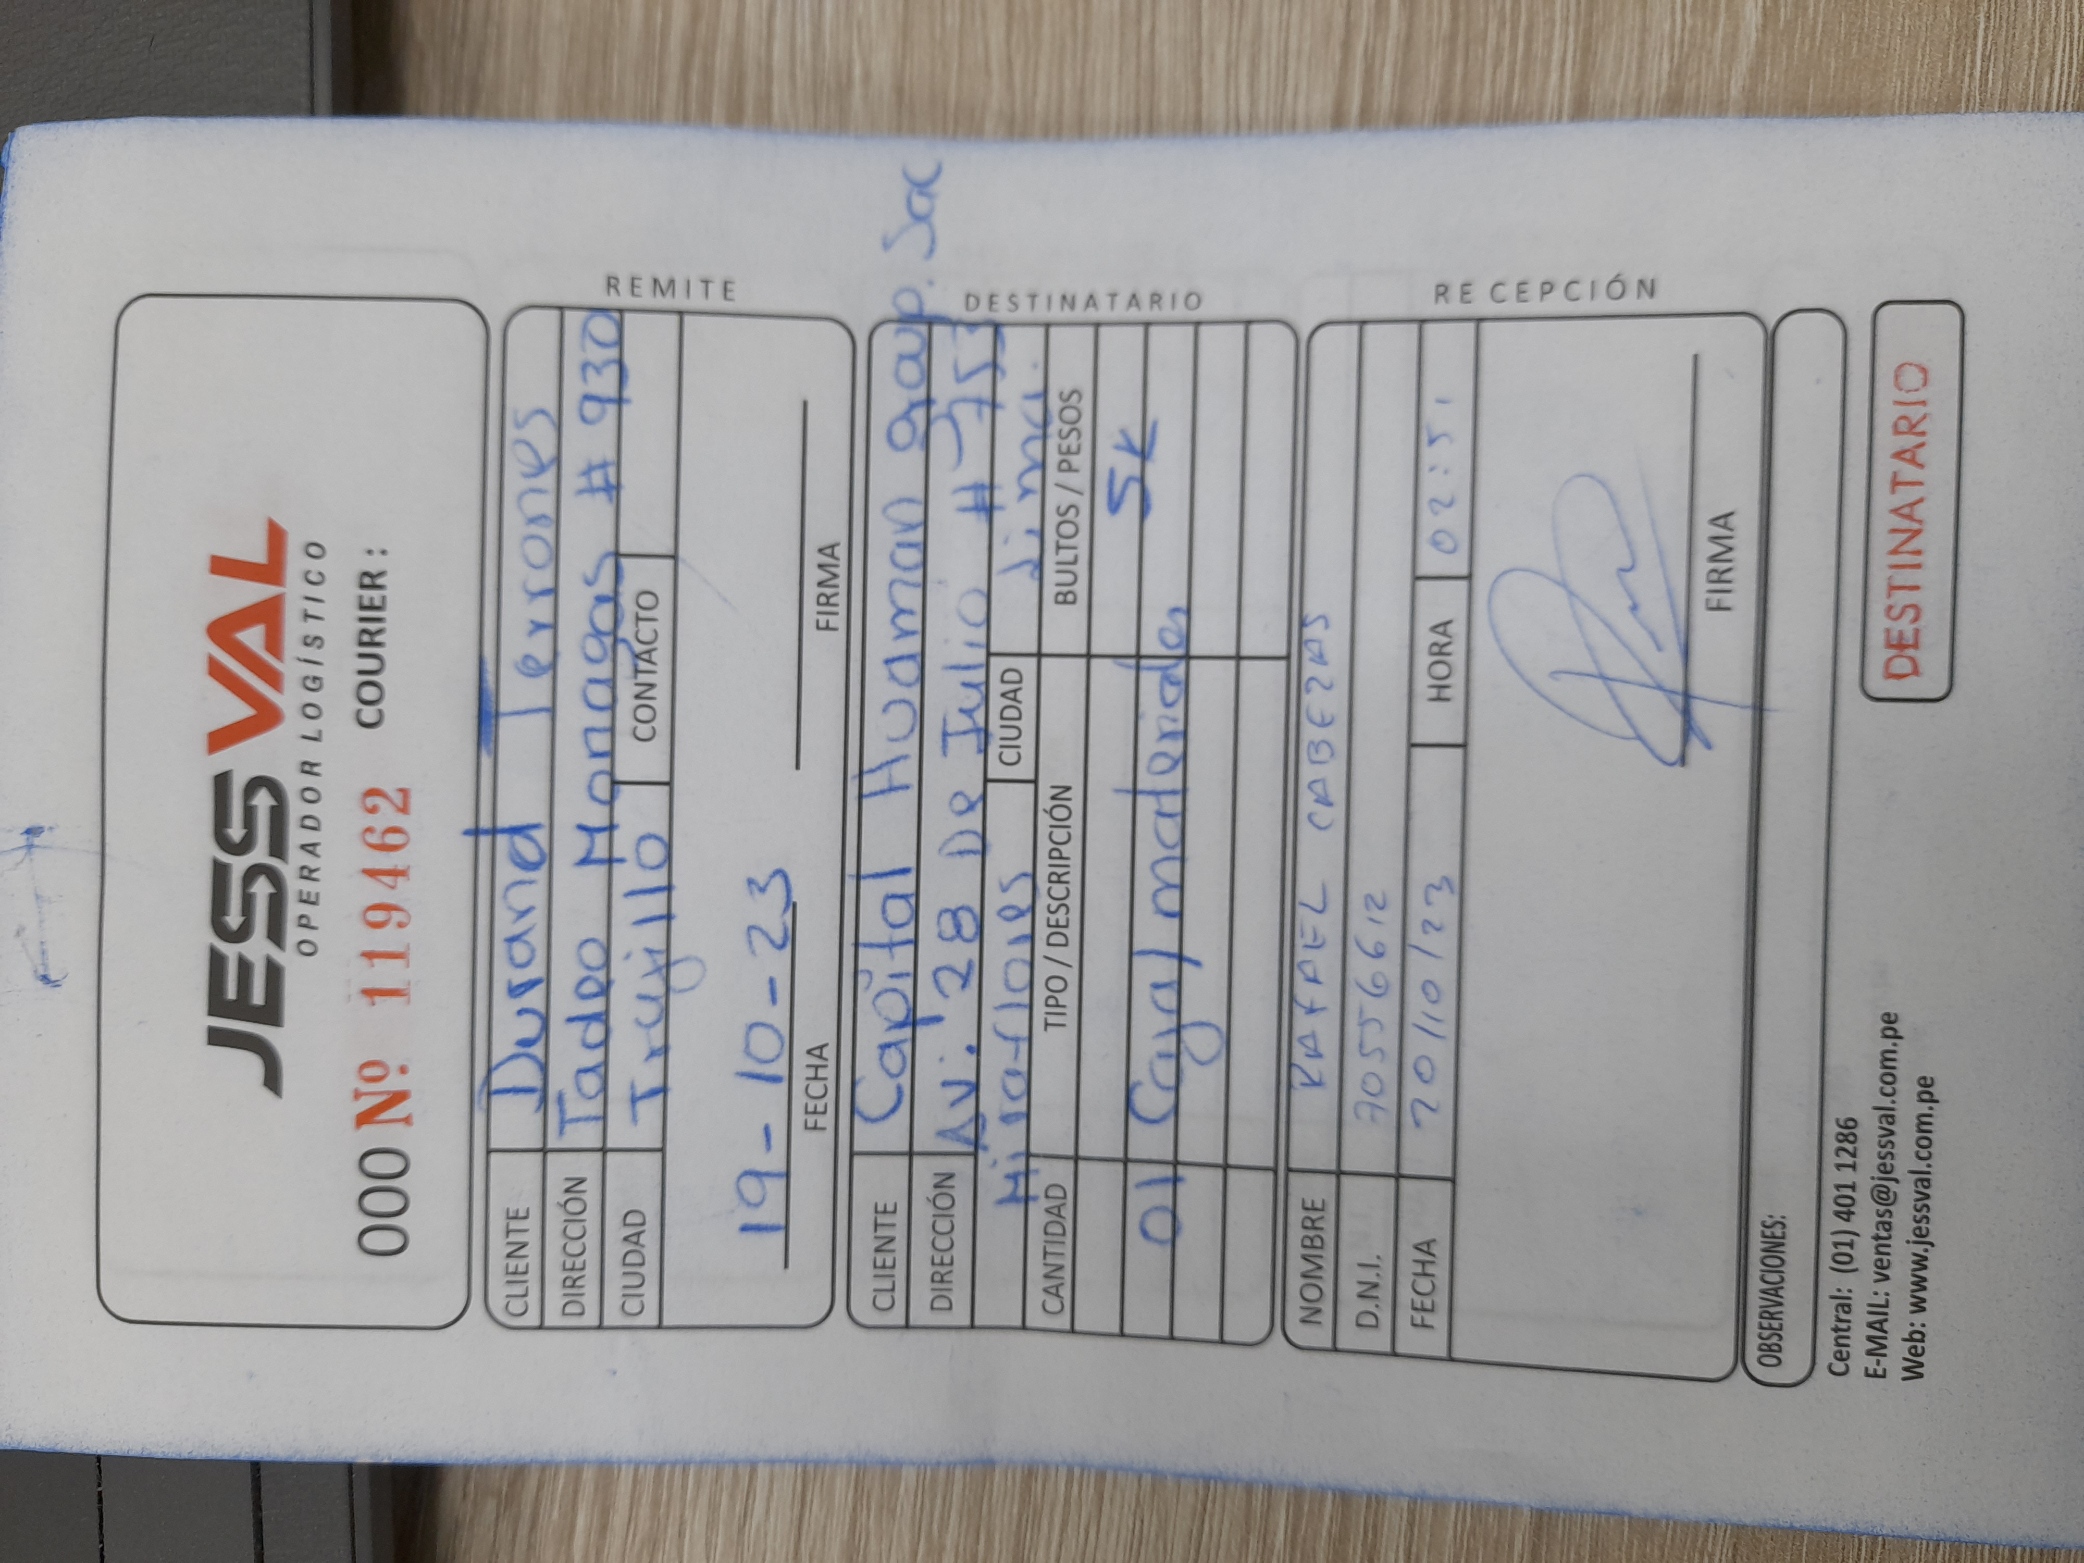 JESSVAL
OPERADOR LOGÍSTICO
000 Nº 119462 COURIER :
CLIENTE Durand Terrones
DIRECCIÓN Tadeo Monagas # 930
CIUDAD Trujillo CONTACTO
REMITE
19-10-23
FECHA FIRMA
CLIENTE Capital Huaman group. Sac
DIRECCIÓN AV: 28 De Julio # 753
Miraflores CIUDAD Lima.
CANTIDAD TIPO / DESCRIPCIÓN BULTOS / PESOS
5k
01 Caja/materiales
DESTINATARIO
NOMBRE RAFAEL CABEZAS
D.N.I. 70556612
FECHA 20/10/23 HORA 02:51
RECEPCIÓN
FIRMA
OBSERVACIONES:
Central: (01) 401 1286
E-MAIL: ventas@jessval.com.pe
Web: www.jessval.com.pe
DESTINATARIO